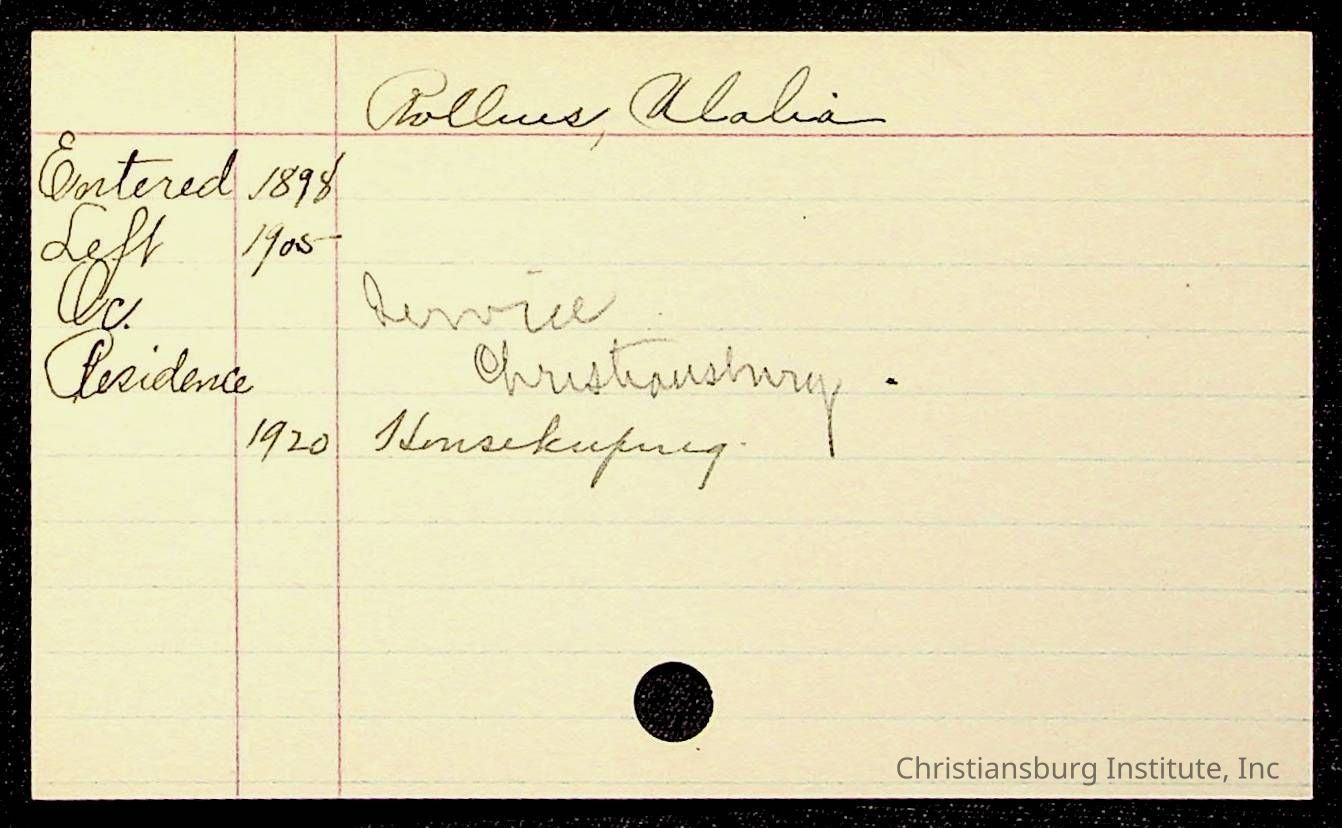 Rollins, Alalia
Entered 1898
Left 1905
Oc. Service
Residence Christiansburg.
1920 Housekeeping.
Christiansburg Institute, Inc